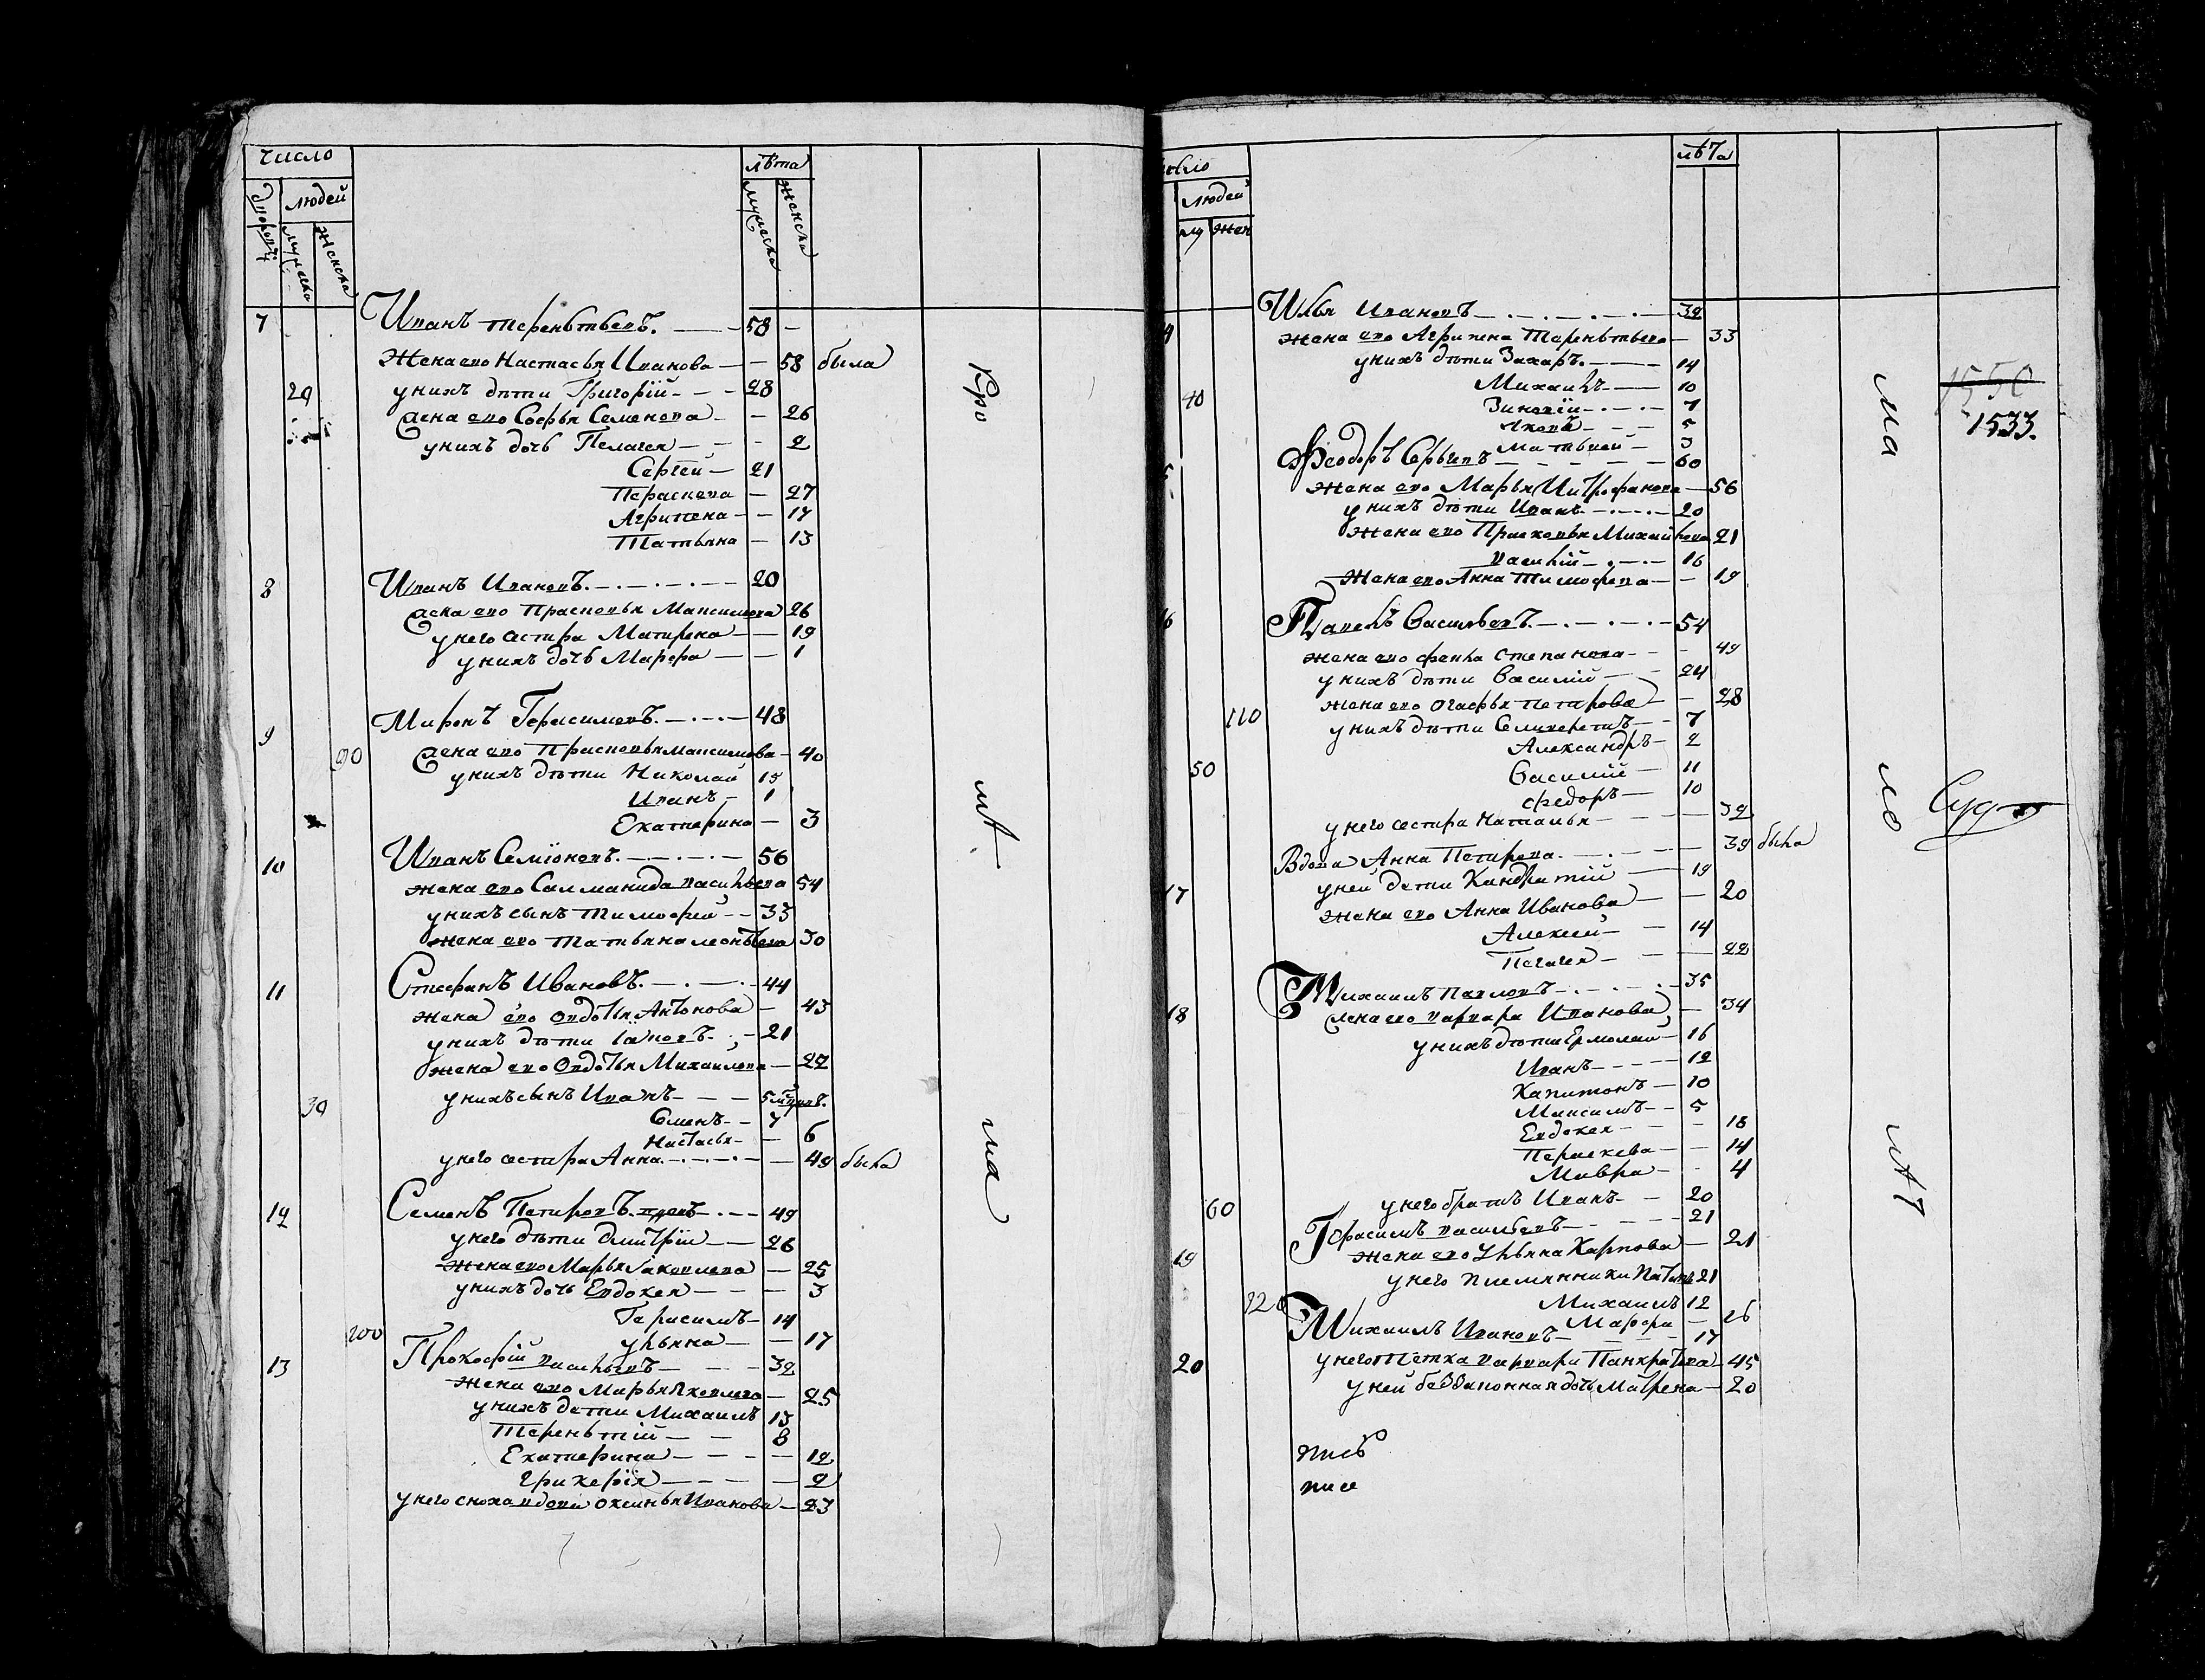 число
лѣта
дворовъ
людей
мужеска
женска
мужеска
женска
7 Иванъ терентьевъ. 58
Жена его Настасья Иванова 58 была
унихъ дѣти Григорій 28
жена его Софья Семенова 26
унихъ дочь Пелагея 2
Сергей 21
Параскева 27
Агрипена 17
Татьяна 13
8 Иванъ Ивановъ. 20
жена его Прасковья Максимова 26
унего сестра Матрена 19
унихъ дочь Марфа 1
9 Миронъ Герасимовъ. 48
90 жена его Прасковья Максимова 40
унихъ дѣти Николай 15
Иванъ 1
Екатерина 3
10 Иванъ Семіоновъ. 56
жена его Саламанида васильева 54
унихъ сынъ тимофей 33
жена его татьяна леонтьева 30
11 Стефанъ Ивановъ. 44
жена его овдотья Антонова 43
унихъ дѣти Іаковъ 21
жена его Овдотья Михаилова 22
30 унихъ сынъ Иванъ
Семенъ 7
Настасья 6
унего сестра Анна 49 была
12 Семенъ Петровъ. 49
унего дѣти дмитрій 26
жена его Марья Іаковлева 25
унихъ дочь Евдокея 3
Герасимъ 14
100 ульяна 17
13 Прокофій васильевъ 32
жена его Марья Яковлева 25
унихъ дети Михаилъ 13
Терентій 8
Екатерина 12
Гликерія 2
унего сноха вдова оксинья Иванова 23
лѣта
людей
му жен
Илья Ивановъ 32
жена его Агрипена Терентьева 33
унихъ дѣти Захаръ. 14
40 Михаилъ 10
Зиновій 7
Яковъ 5
Матвей 3
Феодоръ Сергѣевъ 60
жена его Марья Митрофанова 56
унихъ дѣти Иванъ 20
жена его Прасковья Михайлова 21
василій 16
жена его Анна Тимофева 19
Павелъ Васильевъ. 54
жена его фекла степанова 49
унихъ дѣти василій 24
жена его Огафья петрова 28
110 унихъ дѣти Селиверстъ 7
Александръ 2
50 Василій 11
федоръ 10
унего сестра Наталья 32
Вдова Анна Петрова. 39 была
17 уней дети Кандратій 19
жена его Анна Иванова 20
Алексей 14
Пелагея 22
Михаилъ Павловъ 35
18 жена его варвара Иванова 34
унихъ дѣти Ермолай 16
Иванъ 12
Капитонъ 10
Максимъ 5
Евдокея 18
Параскева 14
Мавра 4
60 унего братъ Иванъ 20
Герасимъ васильевъ 21
19 жена его Ульяна Карпова 21
унего племянники 21
120 Михаилъ 12
Марфа 26
Михаилъ Ивановъ 17
20 унего тетка варвара Панкратова 45
уней беззаконная дочь Матрена 20
1550
1533.